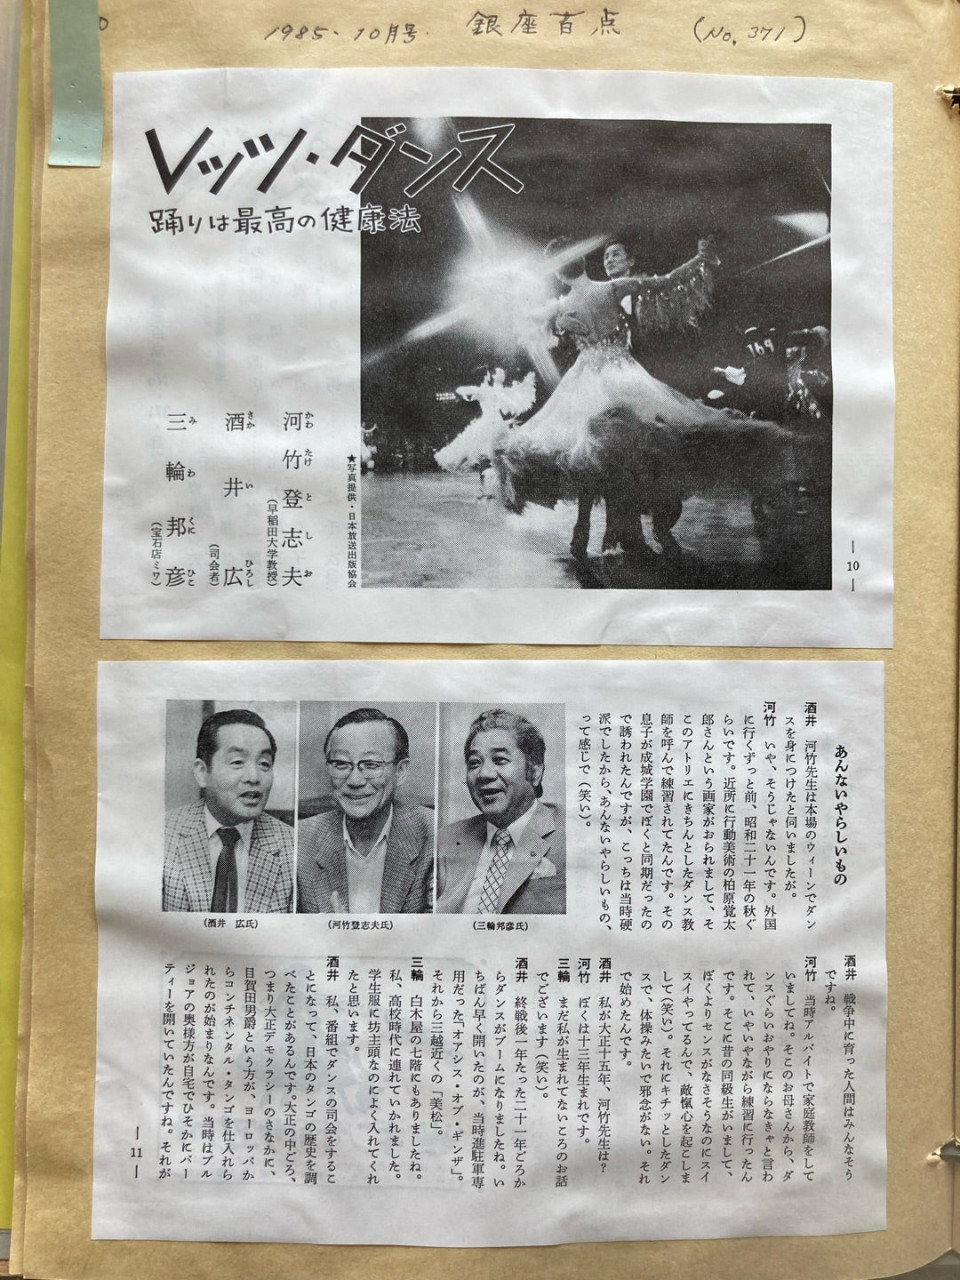 1985.10月号. 銀座百点 (No.371)
レッツ・ダンス
踊りは最高の健康法
169
★写真提供・日本放送出版協会
河竹登志夫
かわたけとしお
(早稲田大学教授)
酒井広
さかいひろし
(司会者)
三輪邦彦
みわくにひこ
(宝石店ミワ)
— 10 —
あんないやらしいもの
酒井 河竹先生は本場のウィーンでダン
スを身につけたと伺いましたが。
河竹 いや、そうじゃないんです。外国
に行くずっと前、昭和二十一年の秋ぐ
らいです。近所に行動美術の柏原覚太
郎さんという画家がおられまして、そ
このアトリエにきちんとしたダンス教
師を呼んで練習されてたんです。その
息子が成城学園でぼくと同期だったの
で誘われたんですが、こっちは当時硬
派でしたから、あんないやらしいもの、
って感じで(笑い)。
(三輪邦彦氏)
(河竹登志夫氏)
(酒井 広氏)
酒井 戦争中に育った人間はみんなそう
ですね。
河竹 当時アルバイトで家庭教師をして
いましてね。そこのお母さんから、ダ
ンスぐらいおやりにならなきゃと言わ
れて、いやいやながら練習に行ったん
です。そこに昔の同級生がいまして、
ぼくよりセンスがなさそうなのにスイ
スイやってるんで、敵愾心を起こしま
して(笑い)。それにキチッとしたダン
スで、体操みたいで邪念がない。それ
で始めたんです。
酒井 私が大正十五年、河竹先生は?
河竹 ぼくは十三年生まれです。
三輪 まだ私が生まれてないころのお話
でございます(笑い)。
酒井 終戦後一年たった二十一年ごろか
らダンスがブームになりましたね。い
ちばん早く開いたのが、当時進駐軍専
用だった「オアシス・オブ・ギンザ」。
それから三越近くの「美松」。
三輪 白木屋の七階にもありましたね。
私、高校時代に連れていかれました。
学生服に坊主頭なのによく入れてくれ
たと思います。
酒井 私、番組でダンスの司会をするこ
とになって、日本のタンゴの歴史を調
べたことがあるんです。大正の中ごろ、
つまり大正デモクラシーのさなかに、
目賀田男爵という方が、ヨーロッパか
らコンチネンタル・タンゴを仕入れら
れたのが始まりなんです。当時はブル
ジョアの奥様方が自宅でひそかにパー
ティーを開いていたんですね。それが
— 11 —